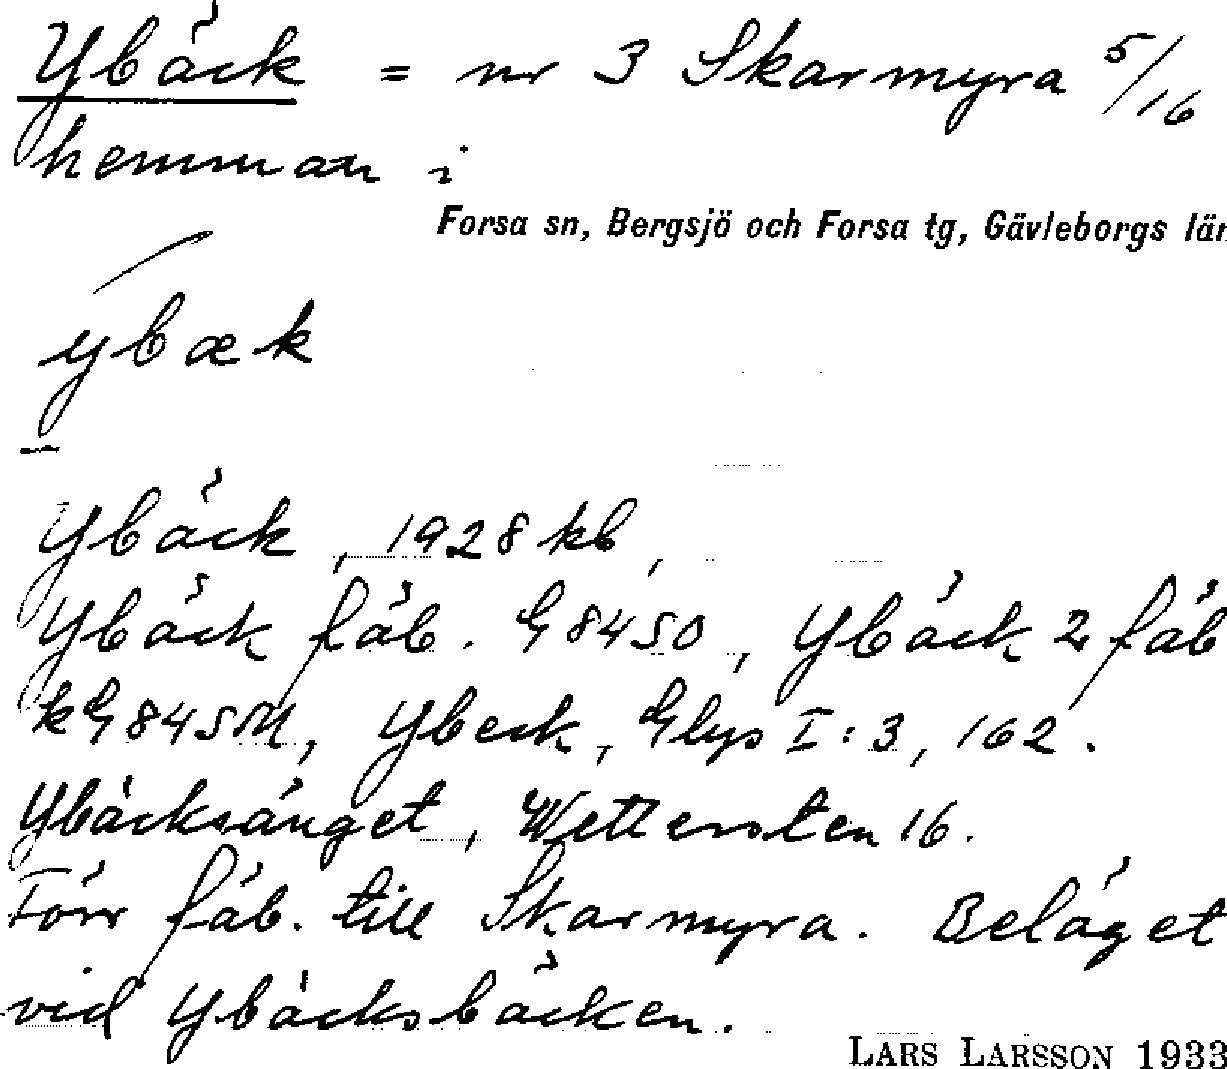 Ybäck = nr 3 Skarmyra 5/16
hemman i
Forsa sn, Bergsjö och Forsa tg, Gävleborgs län
ybæk
Ybäck, 1928 kb,
Ybäck fäb. G 84 SO, Ybäck 2 fäb
kG 84 SM, Ybeck, Glys I:3, 162.
Ybäcksänget, Wettersten 16.
Förr fäb. till Skarmyra. Beläget
vid Ybäcksbäcken.
LARS LARSSON 1933